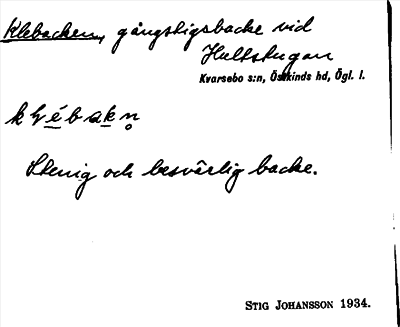 Klebacken, gångstigsbacke vid
Hultstugan
Kvarsebo s:n, Östkinds hd, Ögl. l.
Stenig och besvärlig backe.
STIG JOHANSSON 1934.